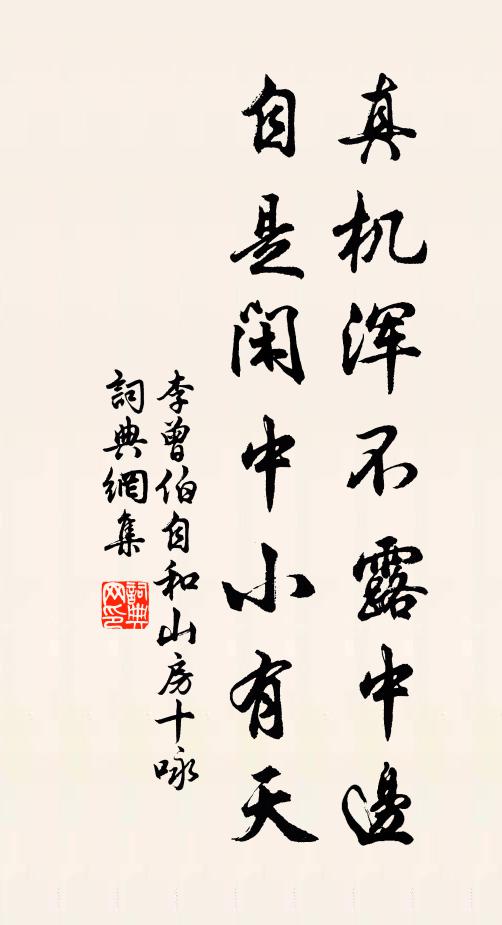 真机浑不露中邊
自是閑中小有天
李曾伯自和山房十咏
詞典網集
詞典網印